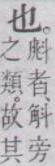 也。
魁者、斛旁
之類。故其